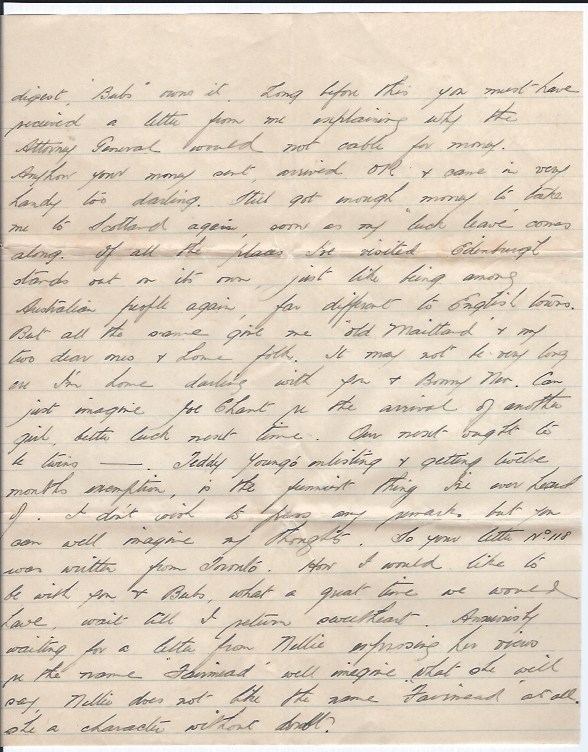 digest, "Bubs" owns it. Long before this you must have
received a letter from me explaining why the
Attorney General would not cable for money.
Anyhow your money sent, arrived OK & came in very
handy too darling. Still got enough money to take
me to Scotland again, soon as my "luck leave" comes
along. Of all the places I've visited Edenburgh
stands out on its own, just like being among
Australian people again, far different to English towns.
But all the same give me "old Maitland" & my
two dear ones & home folk. It may not be very long
ere I'm home darling with you & Bonny Nev. Can
just imagine Joe Chant re the arrival of another
girl, better luck next time. Our next ought to
be twins —. Teddy Young's enlisting & getting twelve
months exemption, is the funniest thing I've ever heard
of. I don't wish to pass any remark, but you
can well imagine my thoughts. So your letter No 118
was written from Toronto. How I would like to
be with you & Bubs, what a great time we would
have, wait till I return sweetheart. Anxiously
waiting for a letter from Nellie expressing her views
re the name "Fairmead" well imagine what she will
say, Nellie does not like the name "Fairmead" at all.
she a character without doubt.